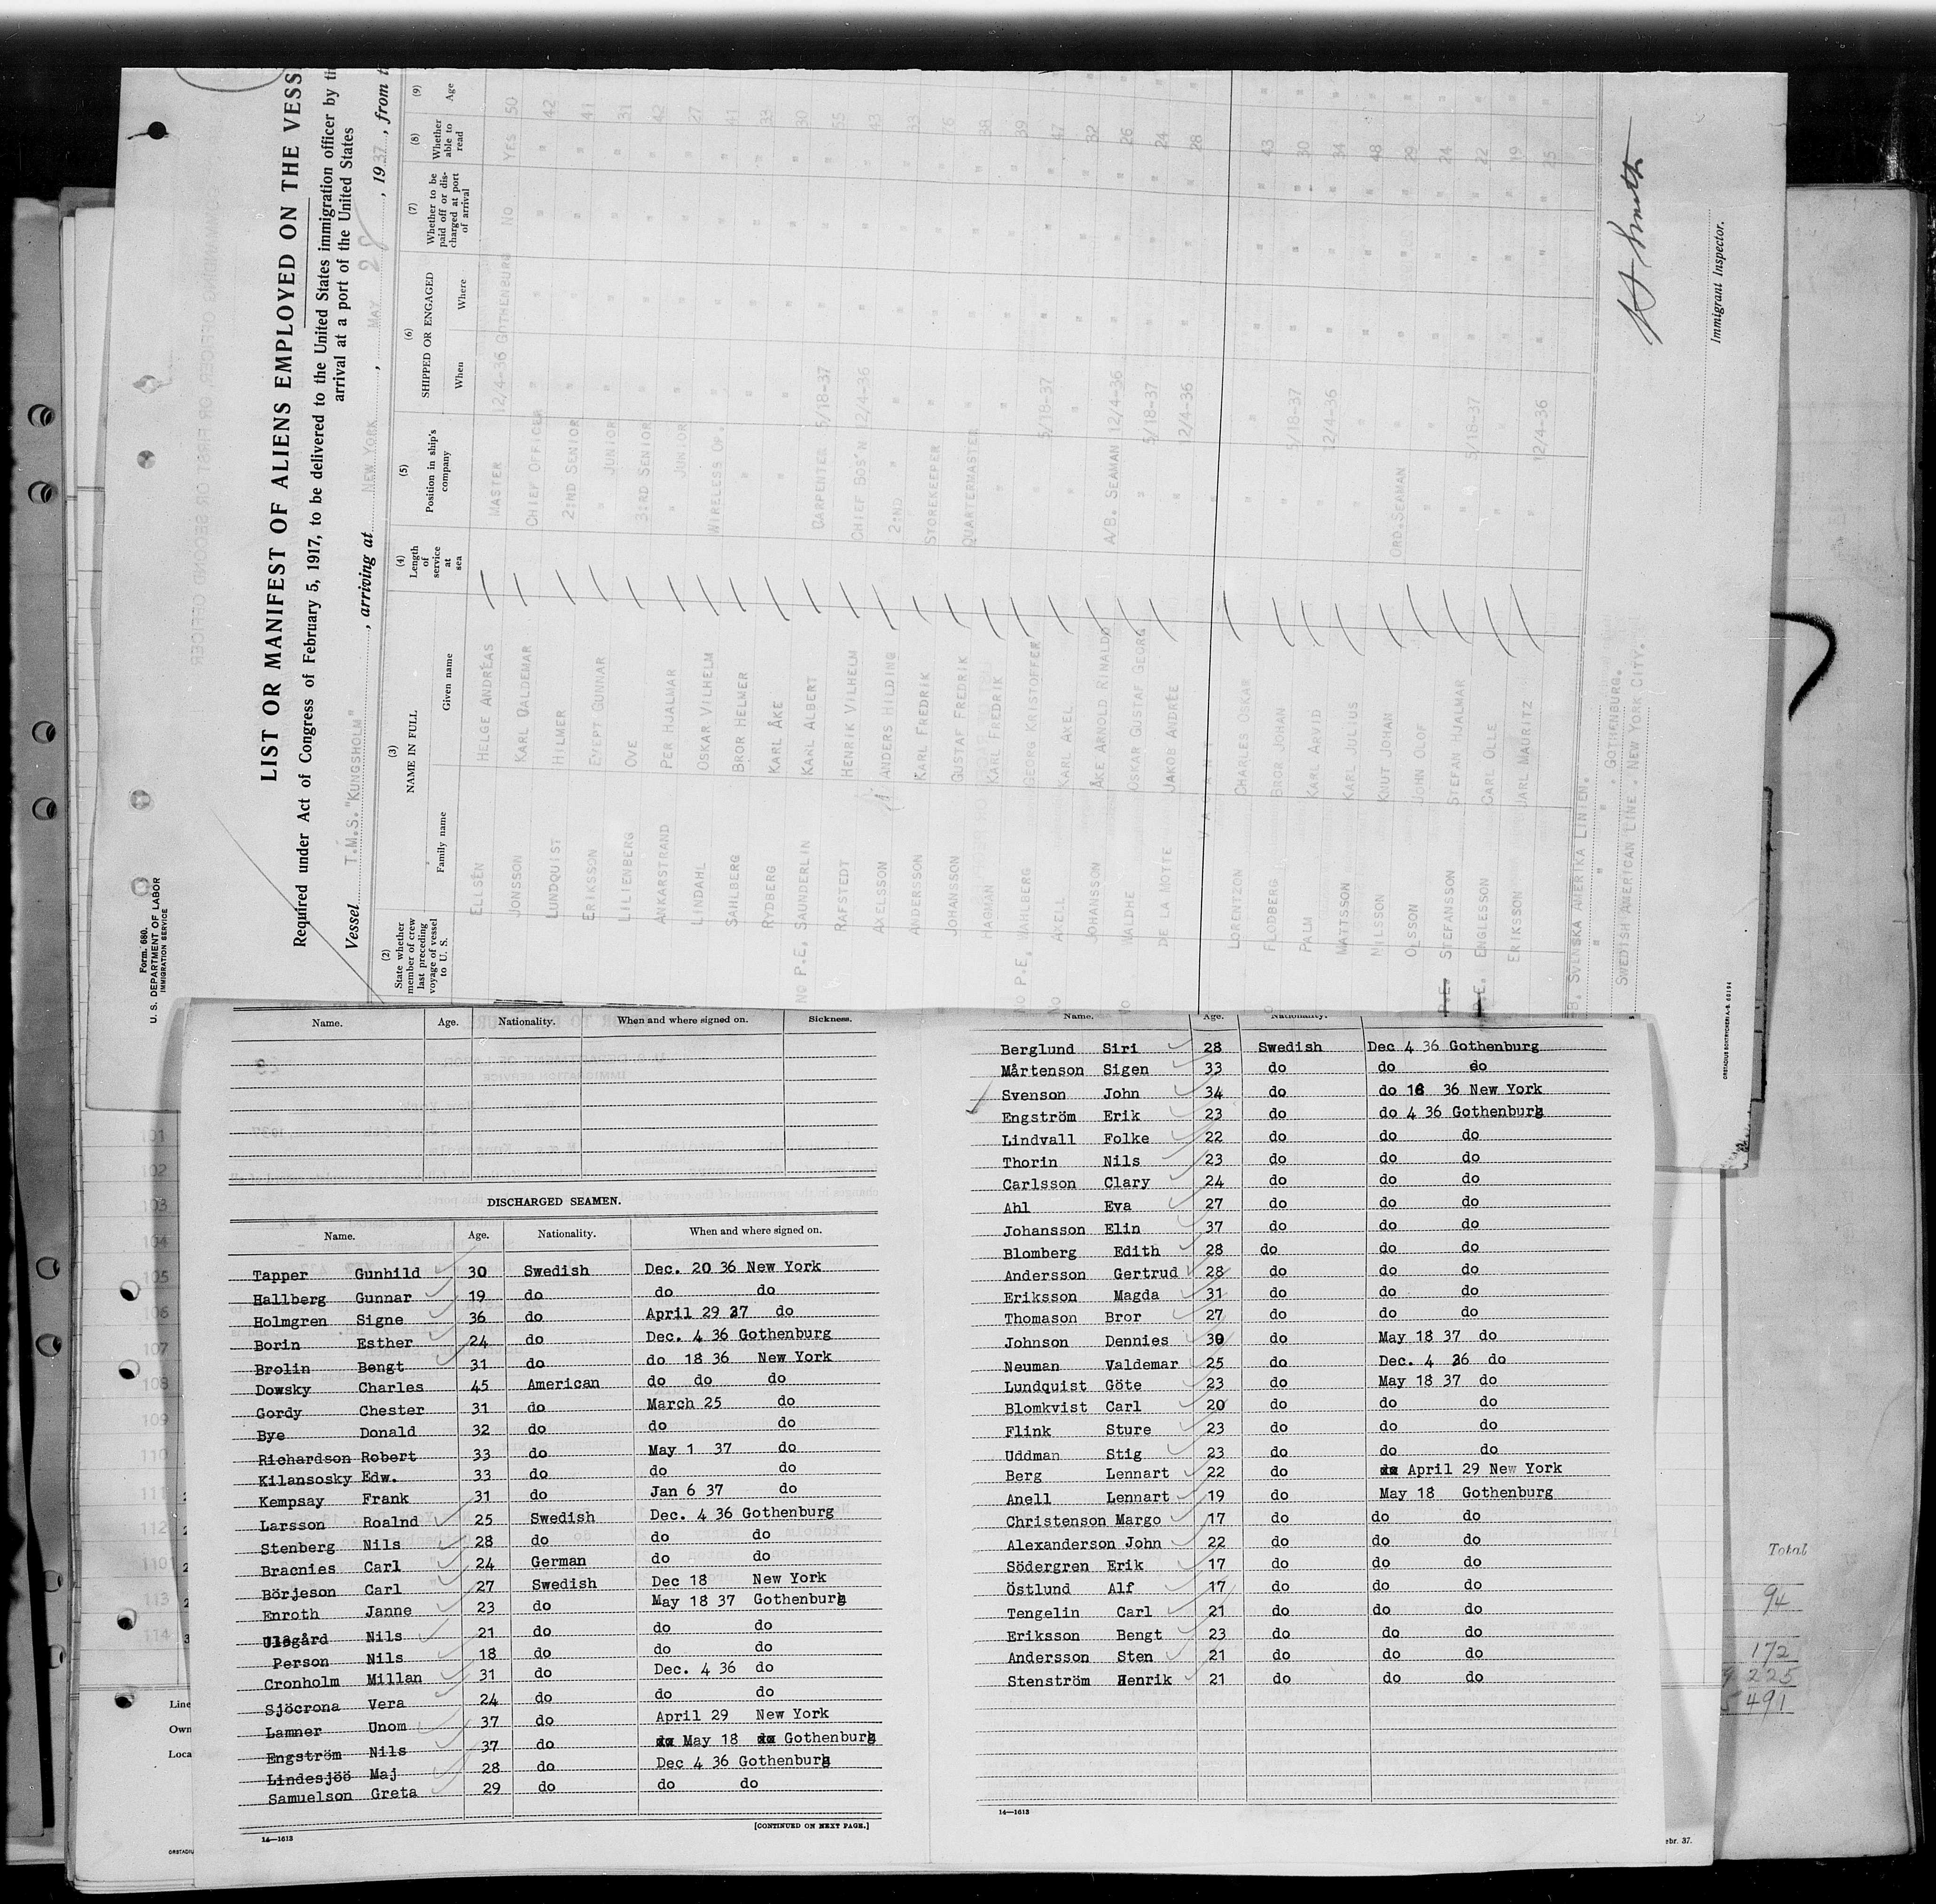 Form 680.
U. S. DEPARTMENT OF LABOR
IMMIGRATION SERVICE
LIST OR MANIFEST OF ALIENS EMPLOYED ON THE VESS
Required under Act of Congress of February 5, 1917, to be delivered to the United States immigration officer by
arrival at a port of the United States
Vessel T.M.S."KUNGSHOLM", arriving at NEW YORK, MAY 28, 1937, from
(2) (3) (4) (5) (6) (7) (8) (9)
State whether member of crew last preceding voyage of vessel to U. S. NAME IN FULL Family name Given name Length of service at sea Position in ship's company SHIPPED OR ENGAGED When Where Whether to be paid off or discharged at port of arrival Whether able to read Age
ELLSÉN HELGE ANDREAS MASTER 12/4-36 GOTHENBURG NO YES 50
JONSSON KARL VALDEMAR CHIEF OFFICER " " " " 42
LUNDQUIST HILMER 2:ND SENIOR " " " " 41
ERIKSSON EVERT GUNNAR " JUNIOR " " " " 31
LILIENBERG OVE 3:RD SENIOR " " " " 42
ANKARSTRAND PER HJALMAR " JUNIOR " " " " 27
LINDAHL OSKAR VILHELM WIRELESS OP. " " " " 41
SAHLBERG BROR HELMER " " " " " 33
RYDBERG KARL ÅKE " " " " " 30
NO P.E. SAUNDERLIN KARL ALBERT CARPENTER 5/18-37 " " " 55
RAFSTEDT HENRIK VILHELM CHIEF BOS'N 12/4-36 " " " 43
AXELSSON ANDERS HILDING 2:ND " " " " " 33
ANDERSSON KARL FREDRIK STOREKEEPER " " " "
JOHANSSON GUSTAF FREDRIK QUARTERMASTER " " " " 38
HAGMAN KARL FREDRIK " " " " " 39
NO P.E. WAHLBERG GEORG KRISTOFFER " 5/18-37 " " " 47
NO AXELL KARL AXEL " " " " " 32
JOHANSSON ÅKE ARNOLD RINALDO A/B. SEAMAN 12/4-36 " " " 26
NO WALDHE OSKAR GUSTAF GEORG " 5/18-37 " " " 24
DE LA MOTTE JAKOB ANDRÉE " 12/4-36 " " " 28
LORENTZON CHARLES OSKAR " " " " " 43
FLODBERG BROR JOHAN " " " " " 30
PALM KARL ARVID " 5/18-37 " " " 34
MATTSSON KARL JULIUS " 12/4-36 " " " 48
NILSSON KNUT JOHAN " " " " " 29
OLSSON JOHN OLOF ORD.SEAMAN " " " " 24
P.E. STEFANSSON STEFAN HJALMAR " " " " " 22
P.E. ENGLESSON CARL OLLE " 5/18-37 " " " 19
ERIKSSON JARL MAURITZ " 12/4-36 " " " 25
B. SVENSKA AMERIKA LINIEN.
" " " . GOTHENBURG.
SWEDISH AMERICAN LINE . NEW YORK CITY.
Immigrant Inspector.
Name. Age. Nationality. When and where signed on. Sickness.
DISCHARGED SEAMEN.
Name. Age. Nationality. When and where signed on.
Tapper Gunhild 30 Swedish Dec. 20 36 New York
Hallberg Gunnar 19 do do do
Holmgren Signe 36 do April 29 37 do
Borin Esther 24 do Dec. 4 36 Gothenburg
Brolin Bengt 31 do do 18 36 New York
Dowsky Charles 45 American do do do
Gordy Chester 31 do March 25 do
Bye Donald 32 do do do
Richardson Robert 33 do May 1 37 do
Kilansosky Edw. 33 do do do
Kempsay Frank 31 do Jan 6 37 do
Larsson Roalnd 25 Swedish Dec. 4 36 Gothenburg
Stenberg Nils 28 do do do
Bracnies Carl 24 German do do
Börjeson Carl 27 Swedish Dec 18 New York
Enroth Janne 23 do May 18 37 Gothenburg
Nils 21 do do do
Person Nils 18 do do do
Cronholm Millan 31 do Dec. 4 36 do
Sjöcrona Vera 24 do do do
Lamner Unom 37 do April 29 New York
Engström Nils 37 do May 18 Gothenburg
Lindesjöö Maj 28 do Dec 4 36 Gothenburg
Samuelson Greta 29 do do do
[CONTINUED ON NEXT PAGE.]
14—1613
Name. Age. Nationality.
Berglund Siri 28 Swedish Dec 4 36 Gothenburg
Mårtenson Sigen 33 do do do
Svenson John 34 do do 18 36 New York
Engström Erik 23 do do 4 36 Gothenburg
Lindvall Folke 22 do do do
Thorin Nils 23 do do do
Carlsson Clary 24 do do do
Ahl Eva 27 do do do
Johansson Elin 37 do do do
Blomberg Edith 28 do do do
Andersson Gertrud 28 do do do
Eriksson Magda 31 do do do
Thomason Bror 27 do do do
Johnson Dennies 30 do May 18 37 do
Neuman Valdemar 25 do Dec. 4 36 do
Lundquist Göte 23 do May 18 37 do
Blomkvist Carl 20 do do do
Flink Sture 23 do do do
Uddman Stig 23 do do do
Berg Lennart 22 do April 29 New York
Anell Lennart 19 do May 18 Gothenburg
Christenson Margo 17 do do do
Alexanderson John 22 do do do
Södergren Erik 17 do do do
Östlund Alf 17 do do do
Tengelin Carl 21 do do do
Eriksson Bengt 23 do do do
Andersson Sten 21 do do do
Stenström Henrik 21 do do do
14—1613
101
102
103
104
105
106
107
108
109
110
111
112
1101
113
114
Line
Own
Loca
Total
94
172
225
491
ebr. 37.